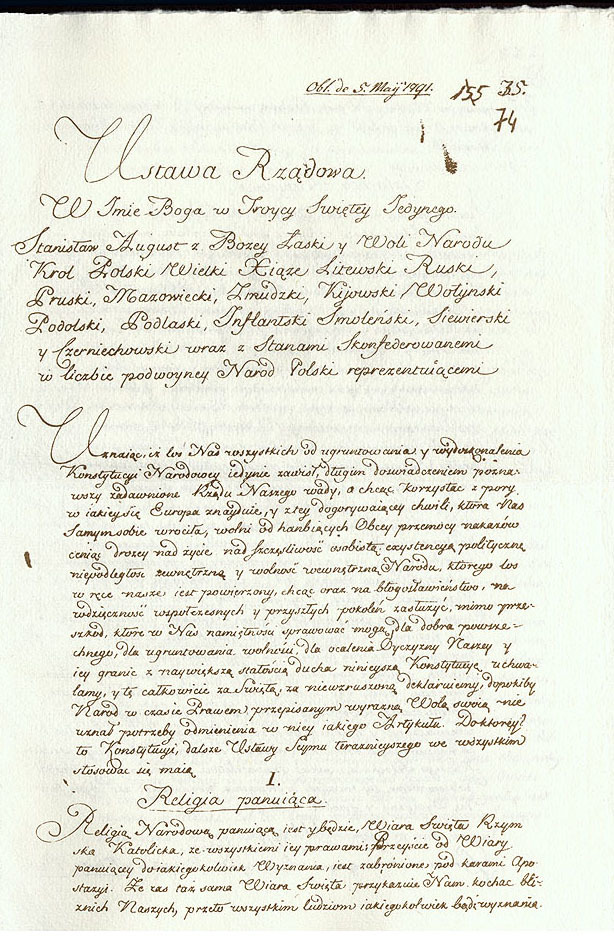 Obl. de 5. Maÿ 1791. 155 35.
74
Ustawa Rządowa.
W Imie Boga w Troycy Swiętey Iedynego.
Stanisław August z Bozey Łaski y Woli Narodu
Krol Polski Wielki Xiąze Litewski Ruski,
Pruski, Mazowiecki, Zmudzki, Kijowski Wołynski
Podolski, Podlaski, Inflantski Smoleński, Siewierski
y Czerniechowski wraz z Stanami Skonfederowanemi
w liczbie podwoyney Narod Polski reprezentuiącemi
Uznaiąc, iz los Nas wszystkich od ugruntowania y wydoskonalenia
Konstytucyi Narodowey iedynie zawisł, długim doswiadczeniem pozna-
wszy zadawnione Rządu Naszego wady, a chcąc korzystac z pory
w iakiey się Europa znayduie, y z tey dogorywaiącey chwili, ktora Nas
Samym sobie wrociła, wolni od hanbiących Obcey przemocy nakazow
ceniąc drozey nad zycie nad szczęsliwosc osobistą, exystencyą polityczną
niepodległosc zewnętrzną y wolnosc wewnętrzną Narodu, ktorego los
w ręce nasze iest powierzony, chcąc oraz na błogosławienstwo, na
wdzięcznosc wspołczesnych y przyszłych pokolen zasłuzyc, mimo prze-
szkod, ktore w Nas namiętnosci sprawowac mogą, dla dobra powsze-
chnego, dla ugruntowania wolnosci, dla ocalenia Oyczyzny Naszey y
iey granic z naywiększą stałoscią ducha ninieyszą Konstytucyę uchwa-
lamy, y tę całkowicie za swiętą, za niewzruszoną deklaruiemy, dopokiby
Narod w czasie Prawem przepisanym wyrazną Wolą swoią nie
uznał potrzeby odmienienia w niey iakiego Artykułu. Do ktorey
to Konstytucyi, dalsze Ustawy Seymu teraznieyszego we wszystkim
stosowac się maią
I.
Religia panuiąca.
Religią Narodową panuiącą iest y będzie, Wiara Swięta Rzym
ska Katolicka, ze wszystkiemi iey prawami; przeyscie od Wiary
panuiącey do iakiegokolwiek Wyznania, iest zabronione pod karami Apo
stazyi. Ze zas taz sama Wiara Swięta przykazuie Nam kochac bli-
znich Naszych, przeto wszystkim ludziom iakiegokolwiek bądz wyznania.